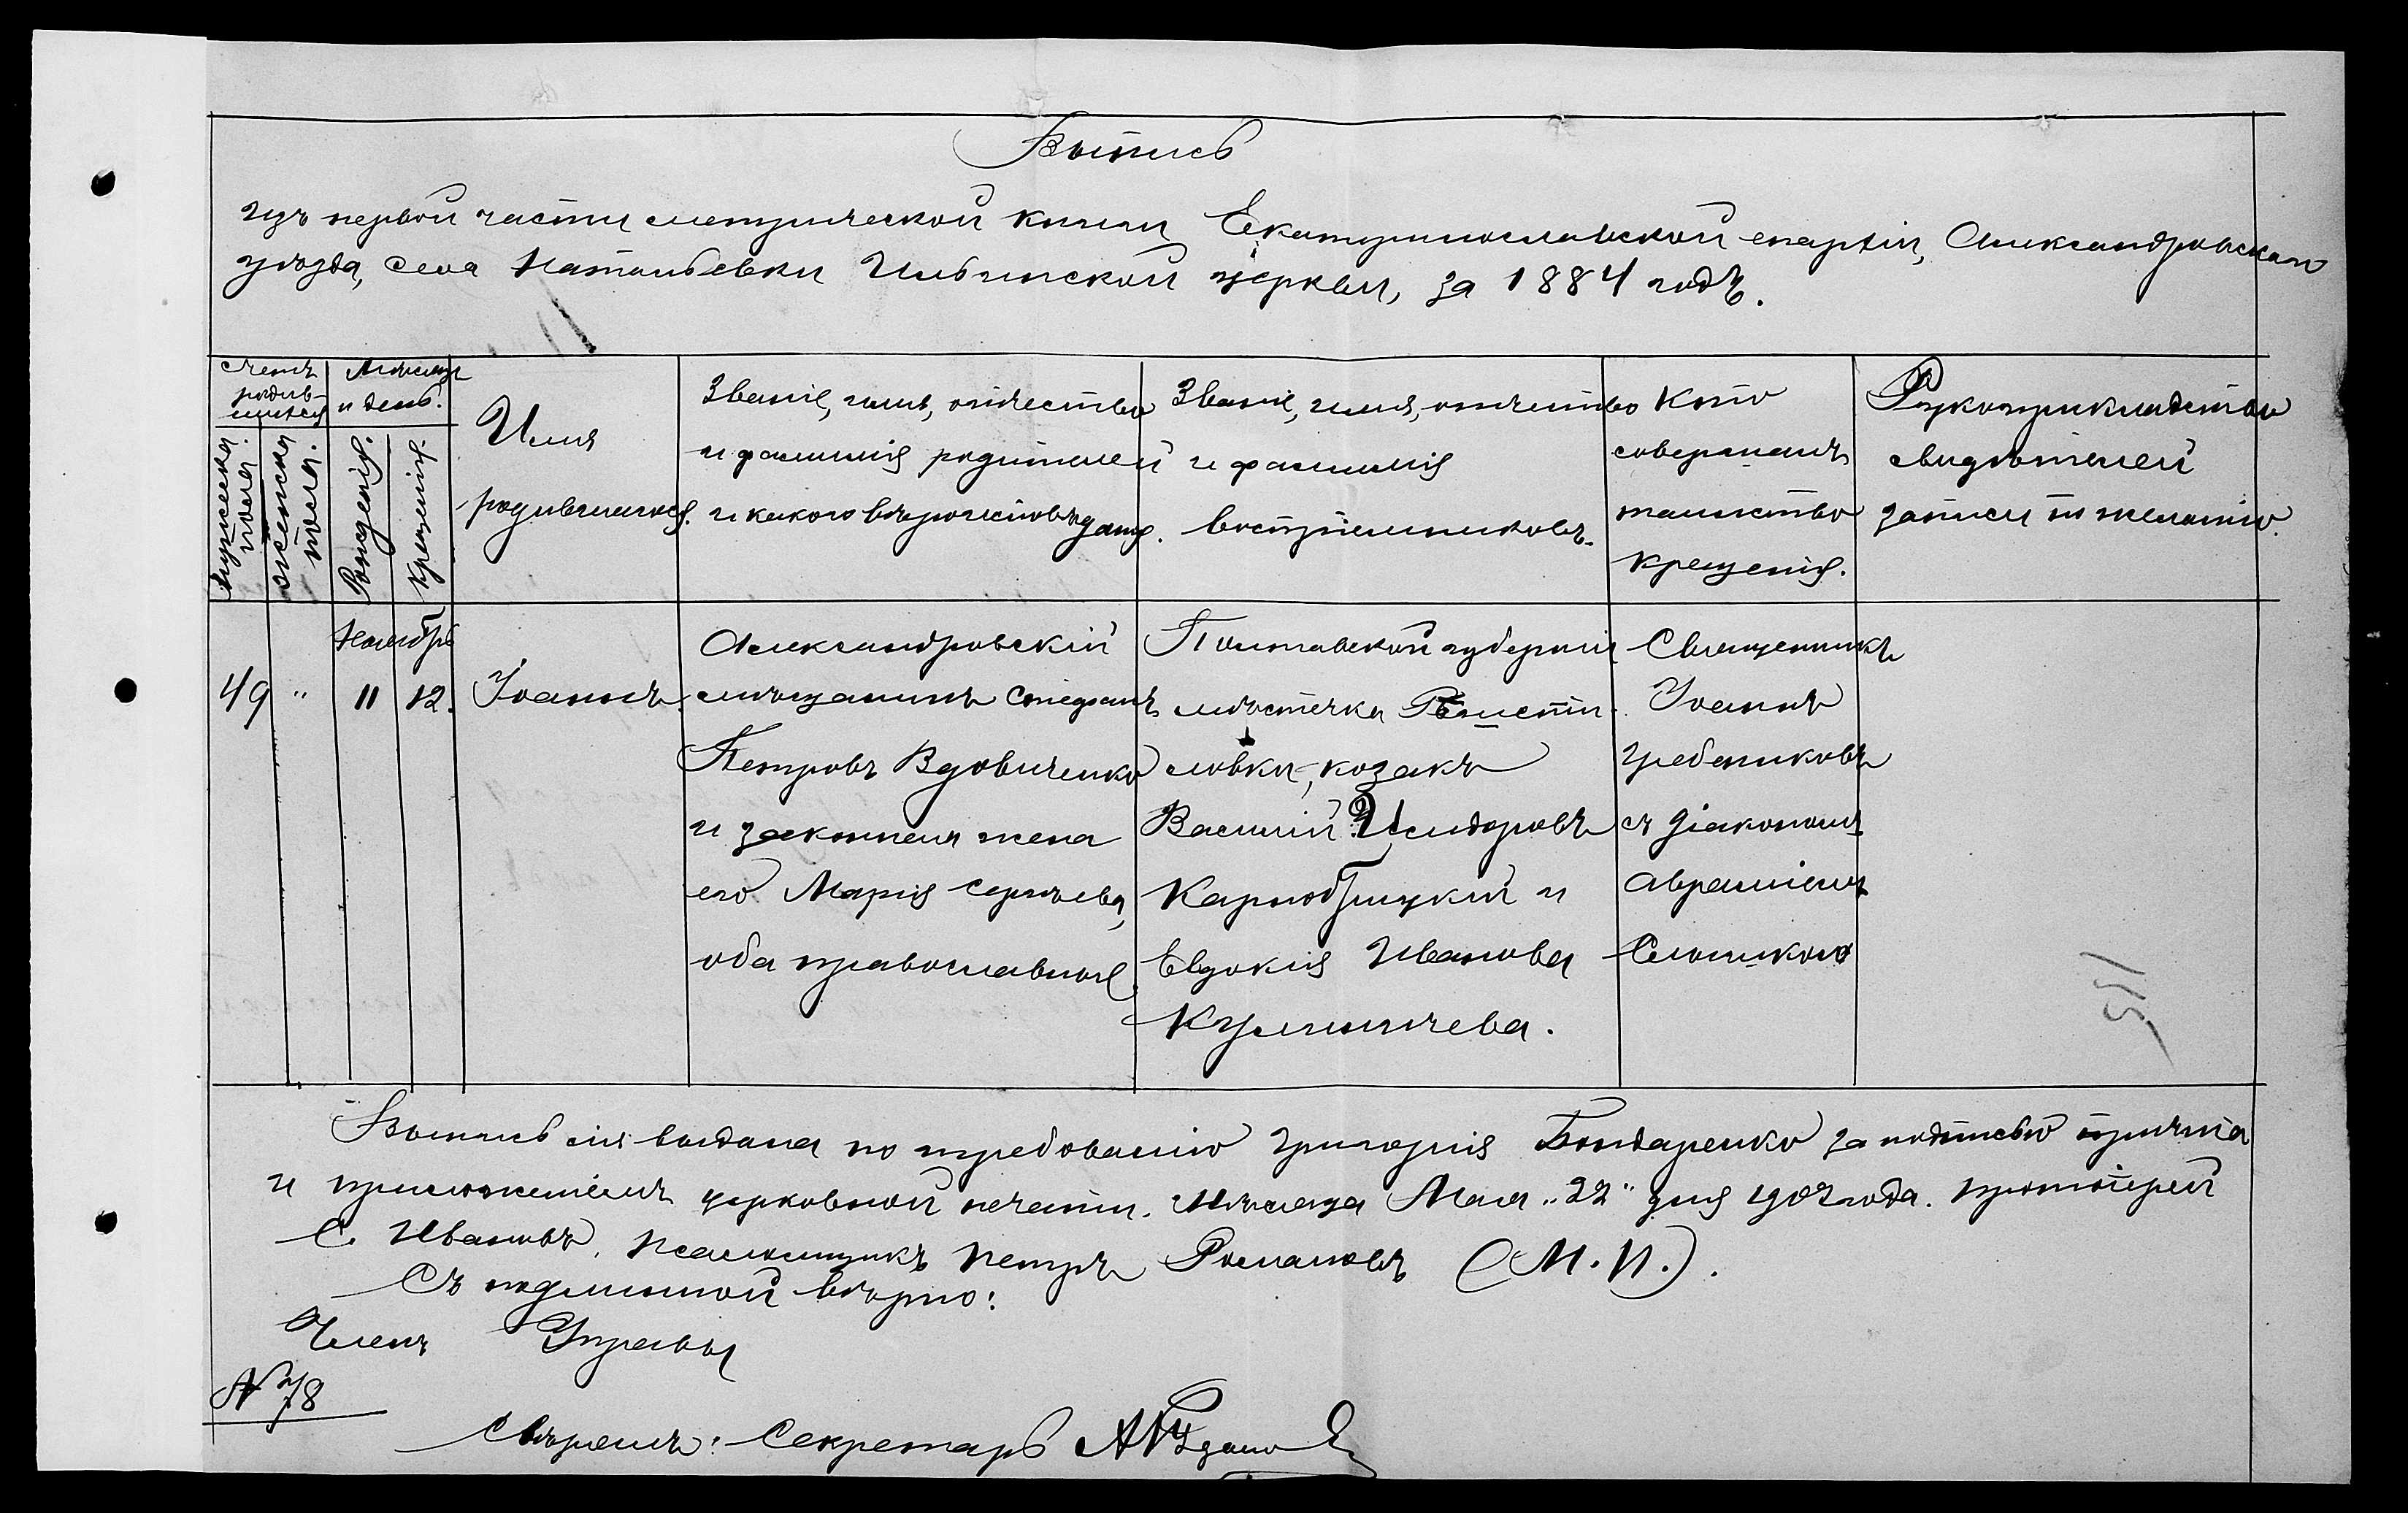 Выпись
изъ первой части метрической книги Екатеринославской епархіи, Александровскаго
уѣзда, села Натальевки Ильинской церкви, за 1884 годъ.
Счетъ родив-
шихся
Мѣсяцъ
и день.
мужеска пола.
женска пола.
Рожденія.
Крещенія.
Имя
родившагося.
Званіе, имя, отчество
и фамилія родителей
и какого вѣроисповѣданія.
Званіе, имя, отчество
и фамилія
воспріемниковъ.
Кто
совершалъ
таинство
крещенія.
Рукоприкладство
свидѣтелей
записи по желанію.
Ноябрь
49 " 11 12. Іоаннъ.
Александровскій
мѣщанинъ Стефанъ
Петровъ Вдовиченко
и законная жена
его Марія Сергѣева,
оба православные.
Полтавской губерніи
мѣстечка
козакъ
Василій Исидоровъ
и
Евдокія Иванова
Священникъ
Іоаннъ
Гребениковъ
съ діакономъ
Авраміемъ
115
Выпись сія выдана по требованію Григорія Бондаренко за подписью причта
и приложеніемъ церковной печати. Мѣсяца Мая „22" дня 1907 года. Протоіерей
С. Ивановъ. Псаломщикъ Петръ Романовъ (М. П.).
Съ подлинной вѣрно:
Членъ Управы
№ 78
Свѣрялъ: Секретарь